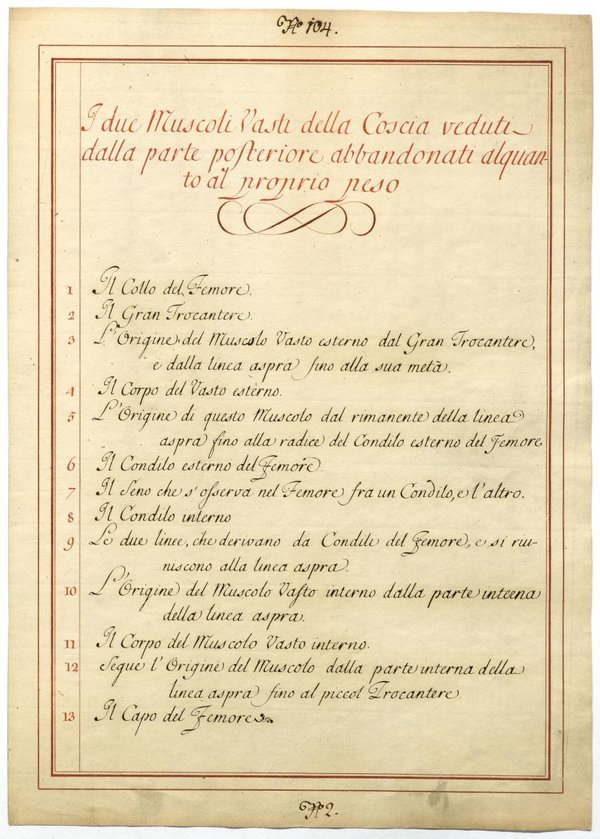 Nº 104.
I due Muscoli Vasti della Coscia veduti
dalla parte posteriore abbandonati alquan-
to al proprio peso
1 Il Collo del Femore.
2 Il Gran Trocantere.
3 L'Origine del Muscolo Vasto esterno dal Gran Trocantere,
e dalla linea aspra fino alla sua metà.
4 Il Corpo del Vasto esterno.
5 L'Origine di questo Muscolo dal rimanente della linea
aspra fino alla radice del Condilo esterno del Femore
6 Il Condilo esterno del Femore
7 Il Seno che s'osserva nel Femore fra un Condilo, e l'altro.
8 Il Condilo interno
9 Le due linee, che derivano da Condili del Femore, e si riu-
niscono alla linea aspra.
10 L'Origine del Muscolo Vasto interno dalla parte interna
della linea aspra.
11 Il Corpo del Muscolo Vasto interno.
12 Segue l'Origine del Muscolo dalla parte interna della
linea aspra fino al piccol Trocantere
13 Il Capo del Femore
Nº 2.